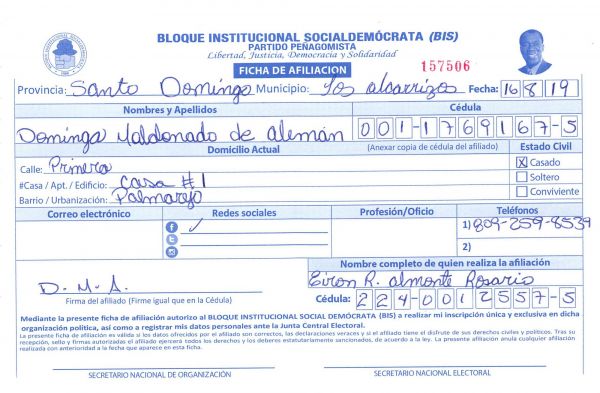 BLOQUE INSTITUCIONAL SOCIALDEMÓCRATA (BIS)
PARTIDO PEÑAGOMISTA
Libertad, Justicia, Democracia y Solidaridad
FICHA DE AFILIACIÓN
157506
Provincia: Santo Domingo Municipio: Los alcarrizos Fecha: 16 8 19
Nombres y Apellidos Cédula
Dominga Maldonado de Alemán 001-1769167-5
Domicilio Actual (Anexar copia de cédula del afiliado) Estado Civil
Calle: Primera X Casado
#Casa / Apt. / Edificio: Casa #1 Soltero
Barrio / Urbanización: Palmarejo Conviviente
Correo electrónico Redes sociales Profesión/Oficio Teléfonos
1) 809-259-8539
2)
Nombre completo de quien realiza la afiliación
D. M. A. Eiron R. almonte Rosario
Firma del afiliado (Firme igual que en la Cédula) Cédula: 224-0012557-5
Mediante la presente ficha de afiliación autorizo al BLOQUE INSTITUCIONAL SOCIAL DEMÓCRATA (BIS) a realizar mi inscripción única y exclusiva en dicha
organización política, así como a registrar mis datos personales ante la Junta Central Electoral.
La presente ficha de afiliación es válida si los datos ofrecidos por el afiliado son correctos, las declaraciones veraces y si el afiliado tiene el disfrute de sus derechos civiles y políticos. Tras su
recepción, sello y firmas autorizadas el afiliado ejercerá todos los derechos y los deberes estatutariamente sancionados, de acuerdo a la ley. La presente afiliación anula cualquier afiliación
realizada con anterioridad a la fecha que aparece en esta ficha.
SECRETARIO NACIONAL DE ORGANIZACIÓN SECRETARIO NACIONAL ELECTORAL